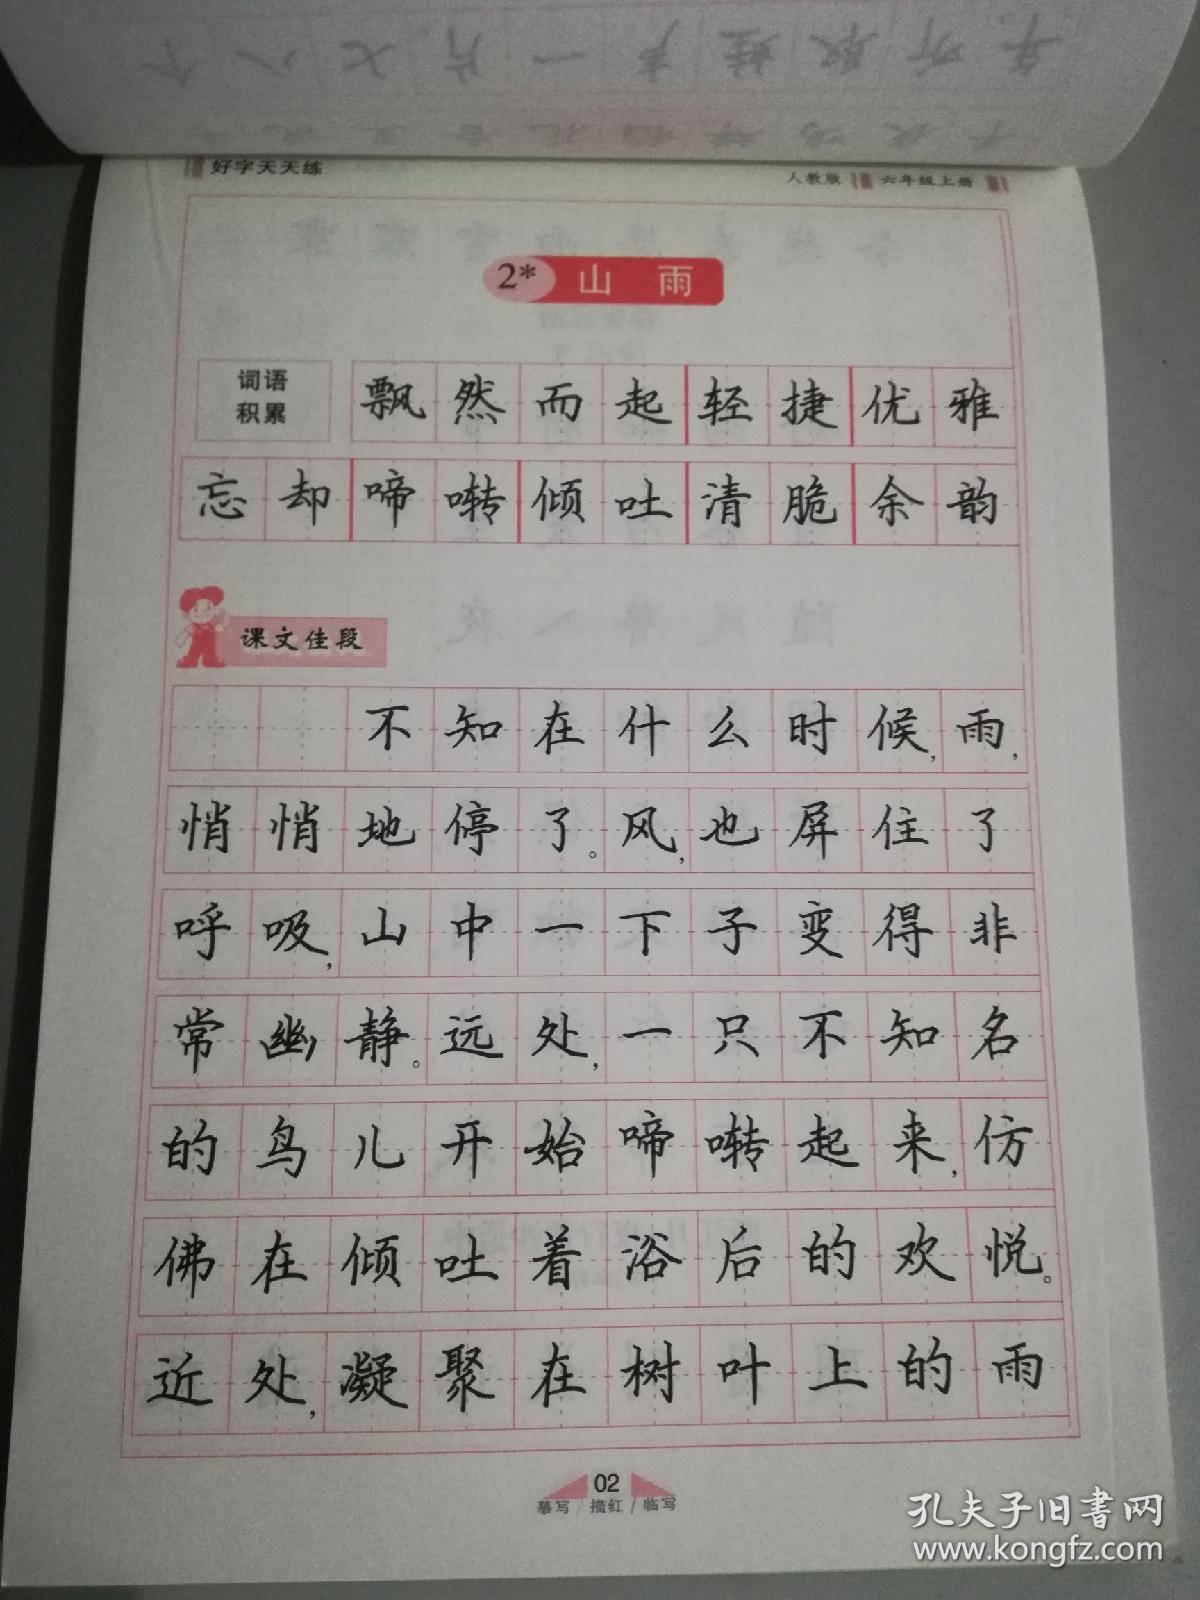 年 听 取 蛙 声 一 片。 七 八 个
好字天天练
人教版 六年级上册
2* 山 雨
词语
积累
飘然而起轻捷优雅
忘却啼啭倾吐清脆余韵
课文佳段
不知在什么时候,雨,
悄悄地停了。风,也屏住了
呼吸,山中一下子变得非
常幽静。远处,一只不知名
的鸟儿开始啼啭起来,仿
佛在倾吐着浴后的欢悦。
近处,凝聚在树叶上的雨
02
摹写/描红/临写
孔夫子旧书网
www.kongfz.com